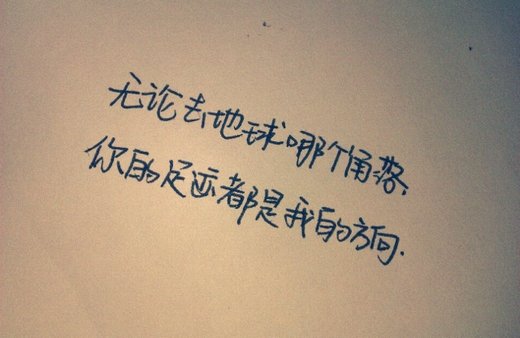 无论去地球哪个角落,
你的足迹都是我的方向.